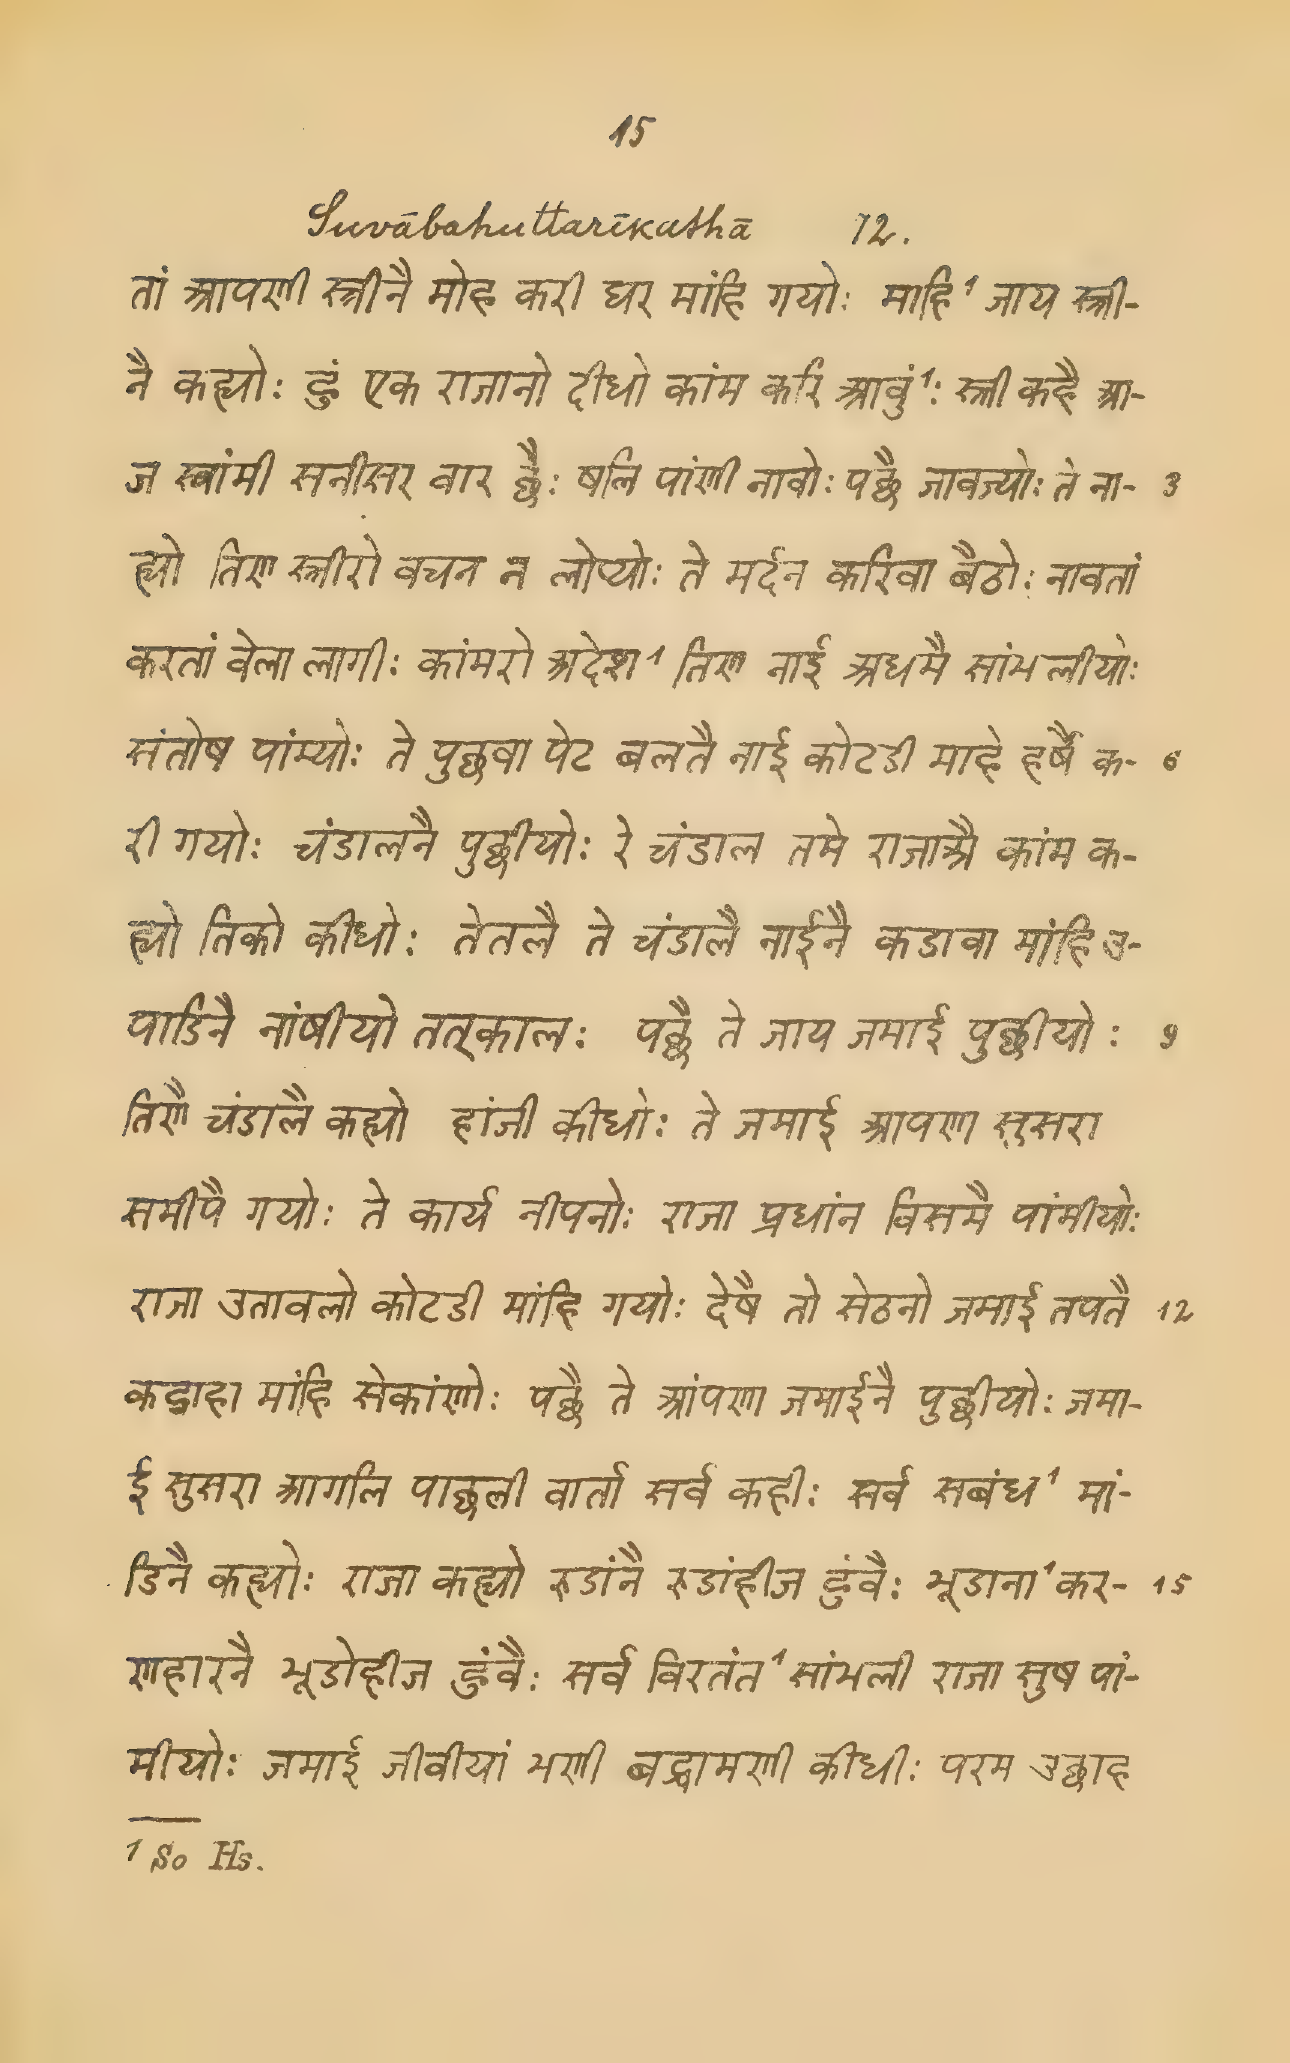 15
Suvābahuttarīkathā 72.
तां आपणी स्त्रीनै मोह करी घर मांहि गयो: माहि¹ जाय स्त्री-
नै कह्यो: हुं एक राजानो दीधो कांम करि आवुं¹: स्त्री कहै आ-
ज स्वांमी सनीसर वार छै: षलि पांणी नावो: पछै जावज्यो: ते ना- 3
ह्यो तिण स्त्रीरो वचन न लोप्यो: ते मर्दन करिवा बैठो: नावतां
करतां वेला लागी: कांमरो अदेश¹ तिण नाई अधमै सांभलीयो:
संतोष पांम्यो: ते पुछवा पेट बलतै नाई कोटडी माहे हर्षै क- 6
री गयो: चंडालनै पुछीयो: रे चंडाल तमे राजाअै कांम क-
ह्यो तिको कीधो: तेतलै ते चंडालै नाईनै कडावा मांहि उ-
पाडिनै नांषीयो तत्काल: पछै ते जाय जमाई पुछीयो: 9
तिणै चंडालै कह्यो हांजी कीधो: ते जमाई आपण सुसरा
समीपै गयो: ते कार्य नीपनो: राजा प्रधांन विसमै पांमीयो:
राजा उतावलो कोटडी मांहि गयो: देषै तो सेठनो जमाई तपतै 12
कढाहा मांहि सेकांणो: पछै ते आंपणा जमाईनै पुछीयो: जमा-
ई सुसरा आगलि पाछली वार्ता सर्व कही: सर्व सबंध¹ मां-
डिनै कह्यो: राजा कह्यो रुडांनै रुडांहीज हुंवै: भूडाना¹ कर- 15
णहारनै भूडोहीज हुंवै: सर्व विरतंत¹ सांभली राजा सुष पां-
मीयो: जमाई जीवीयां भणी बद्धामणी कीधी: परम उछाह
¹ So Hs.